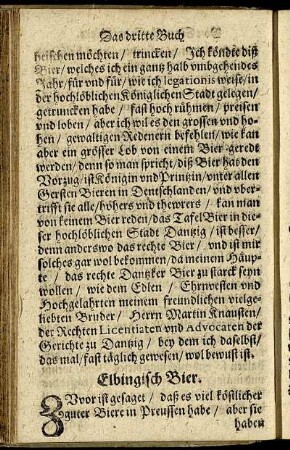 Das dritte Buch
heischen möchten / trincken / Ich köndte diß
Bier / welches ich ein gantz halb vmbgehendes
Jahr / für vnd für / wie ich legationis weise / in
der hochlöblichen Königlichen Stadt gelegen /
getruncken habe / fast hoch rühmen / preisen
vnd loben / aber ich wil es den grossen vnd ho-
hen / gewaltigen Rednern befehlen / wie kan
aber ein grösser Lob von einem Bier geredt
werden / denn so man spricht / diß Bier has den
Vorzug / ist Königin vnd Printzin / vnter allen
Gersten Bieren in Deutschlanden / vnd vber-
trifft sie alle / höhers vnd thewrers / kan man
von keinem Bier reden / das Tafel Bier in die-
ser hochlöblichen Stadt Dantzig / ist besser /
denn anderswo das rechte Bier / vnd ist mir
solches gar wol bekommen / da meinem Häup-
te / das rechte Dantzker Bier zu starck seyn
wollen / wie dem Edlen / Ehrnvesten vnd
Hochgelahrten meinem freundlichen vielge-
liebten Bruder / Herrn Martin Knausten /
der Rechten Licentiaten vnd Advocaten der
Gerichte zu Dantzig / bey dem ich daselbst /
das mal / fast täglich gewesen / wol bewust ist.
Elbingisch Bier.
ZVvor ist gesaget / daß es viel köstlicher
guter Biere in Preussen habe / aber sie
haben